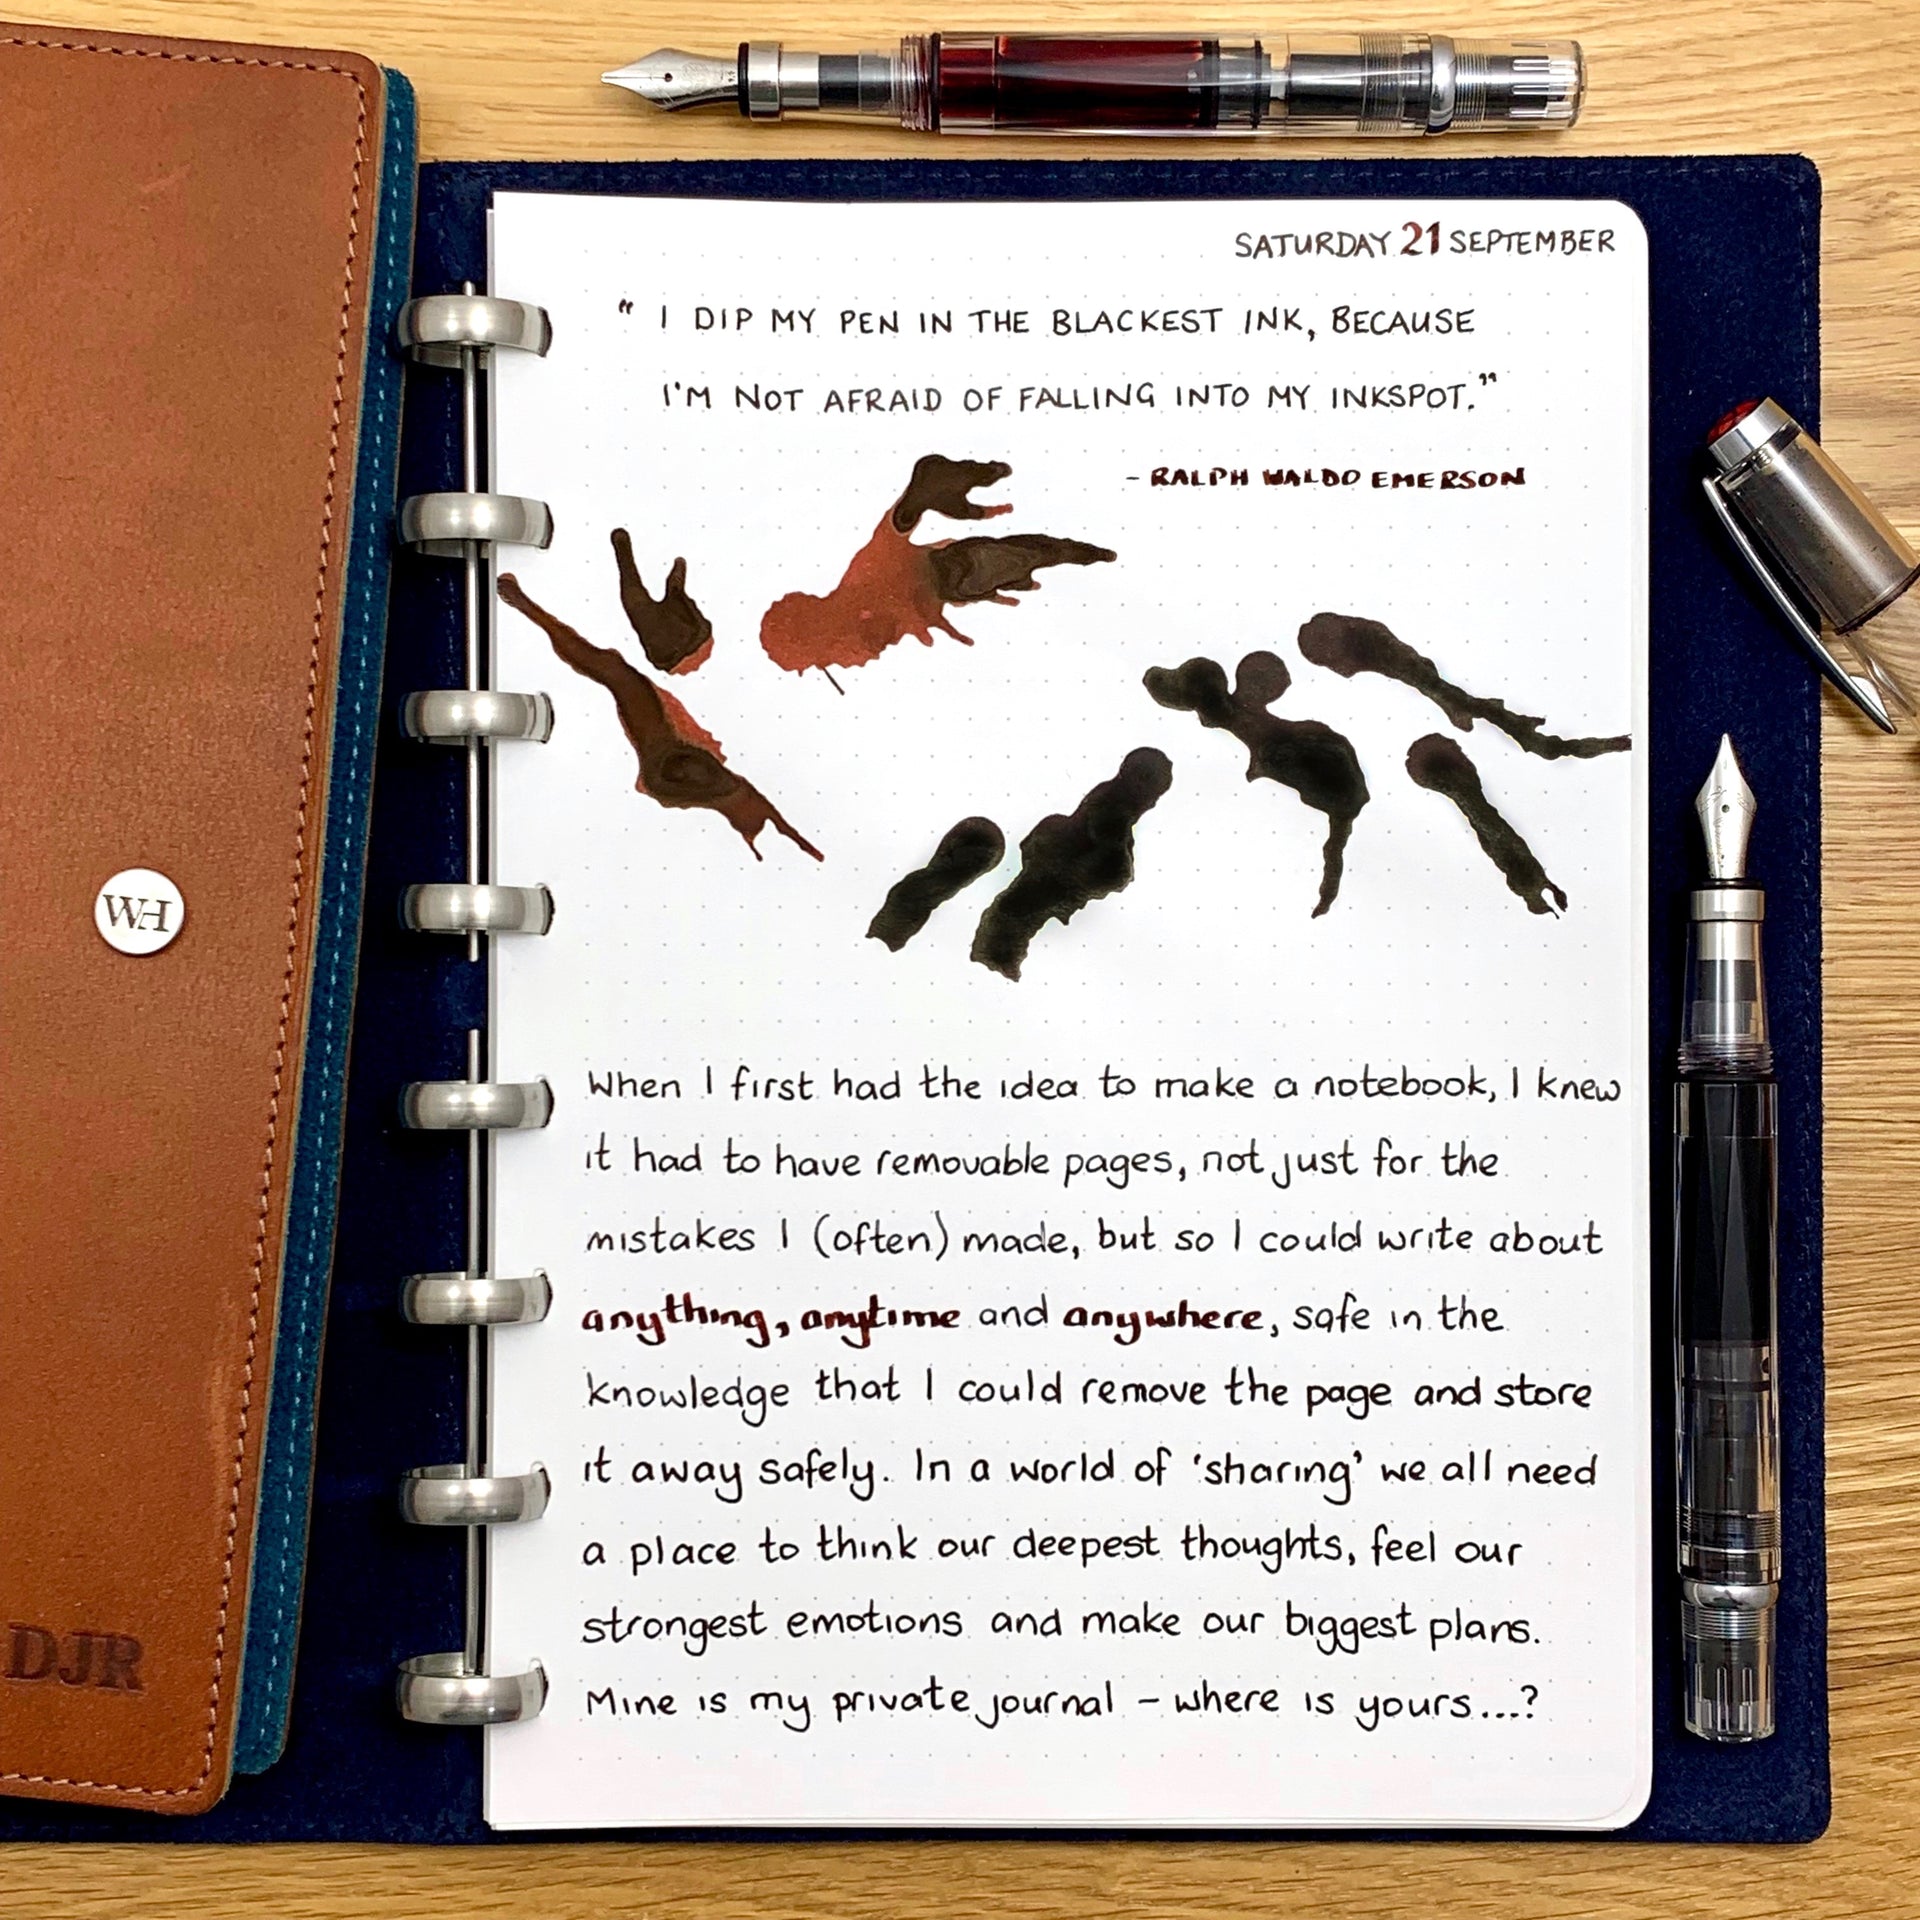 SATURDAY 21 SEPTEMBER
" I DIP MY PEN IN THE BLACKEST INK, BECAUSE
I'M NOT AFRAID OF FALLING INTO MY INKSPOT."
- RALPH WALDO EMERSON
When I first had the idea to make a notebook, I knew
it had to have removable pages, not just for the
mistakes I (often) made, but so I could write about
anything, anytime and anywhere, safe in the
knowledge that I could remove the page and store
it away safely. In a world of 'sharing' we all need
a place to think our deepest thoughts, feel our
strongest emotions and make our biggest plans.
Mine is my private journal – where is yours...?
WH
DJR